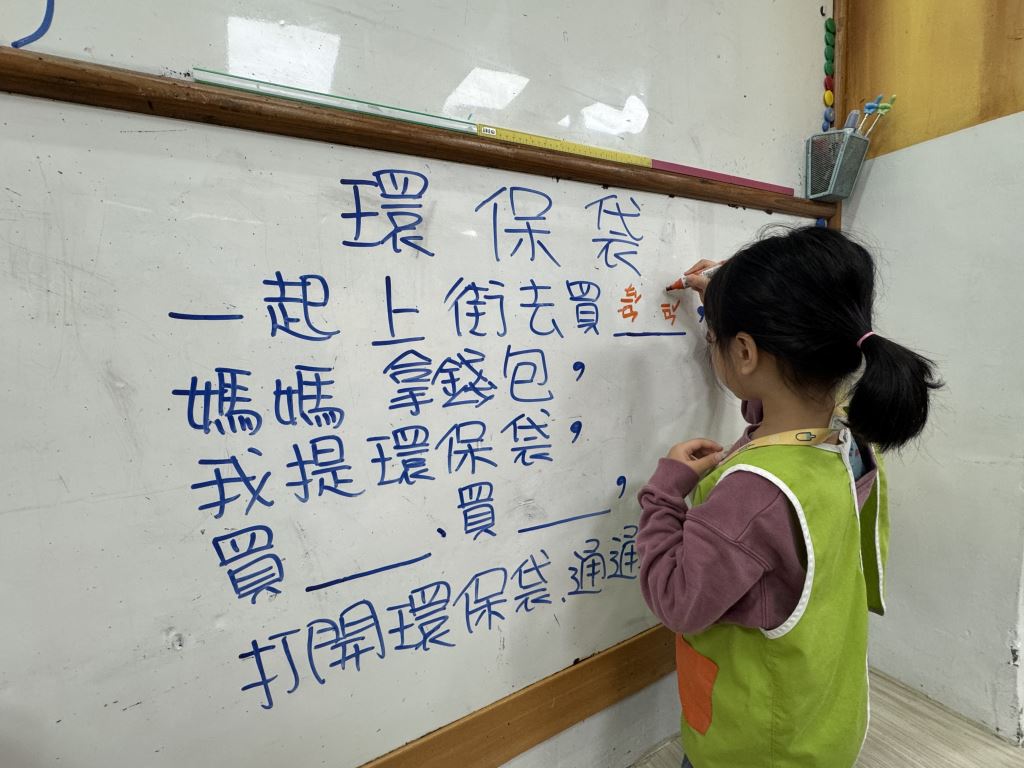 環保袋
一起上街去買____,
媽媽拿錢包,
我提環保袋,
買____、買____,
打開環保袋.通通